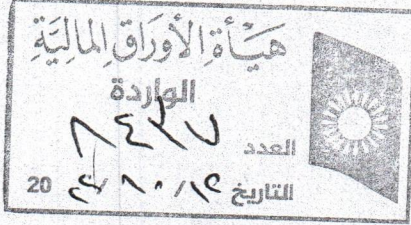 هَيْأَةِ الأَوْرَاقِ المَالِيَّةِ
الواردة
العدد ٨٤٣٧
التاريخ / ١٠ / 20